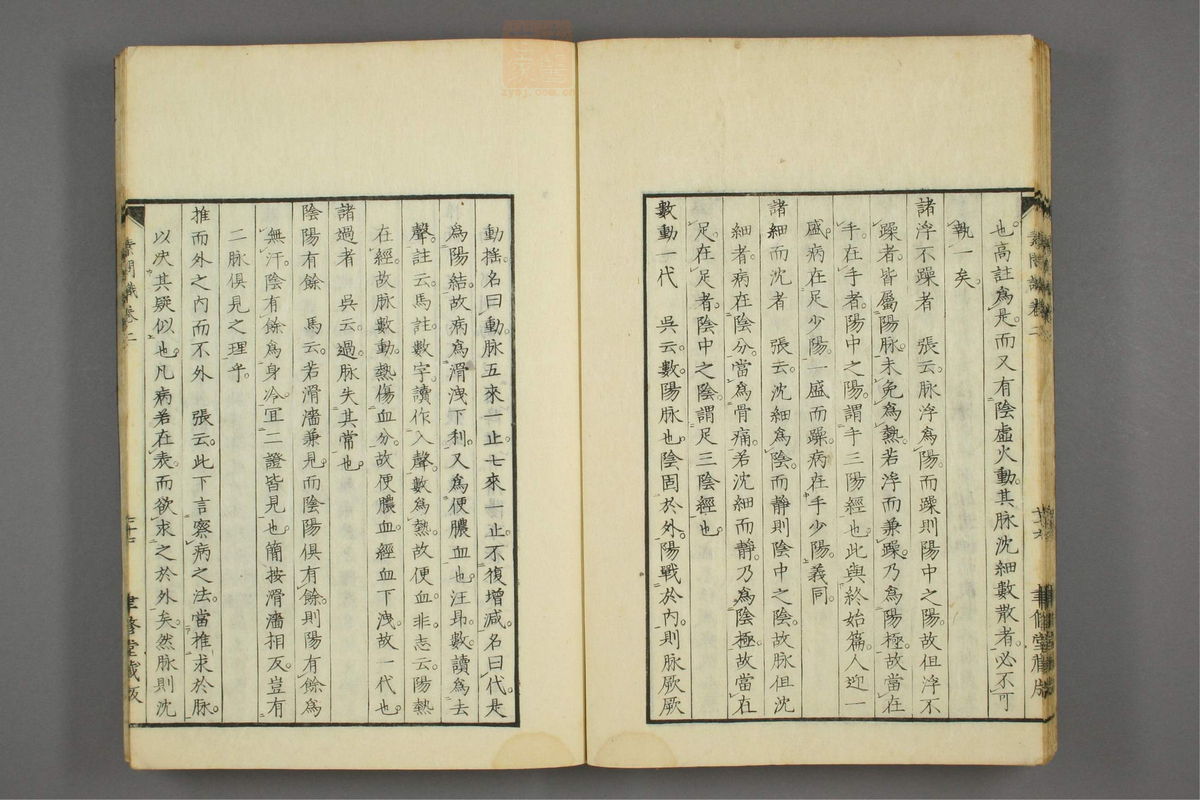 也。高註爲是。而又有陰虛火動。其脈沈細數散者。必不可
執一矣。
諸浮不躁者 張云。脈浮爲陽。而躁則陽中之陽。故但浮不
躁者。皆屬陽脈。未免爲熱。若浮而兼躁。乃爲陽極。故當在
手。在手者。陽中之陽。謂手三陽經也。此與終始篇人迎一
盛。病在足少陽。一盛而躁。病在手少陽。義同。
諸細而沈者 張云。沈細爲陰。而靜則陰中之陰。故脈但沈
細者。病在陰分。當爲骨痛。若沈細而靜。乃爲陰極。故當在
足。在足者。陰中之陰。謂足三陰經也。
數動一代 吳云。數陽脈也。陰固於外。陽戰於內。則脈厥厥
動搖。名曰動。脈五來一止。七來一止。不復增減。名曰代。是
爲陽結。故病爲滑洩下利。又爲便膿血也。汪昻。數讀爲去
聲。註云。馬註。數字讀作入聲。數爲熱。故便血。非。志云。陽熱
在經。故脈數動。熱傷血分。故便膿血。經血下洩。故一代也。
諸過者 吳云。過。脈失其常也。
陰陽有餘 馬云。若滑濇兼見。而陰陽俱有餘。則陽有餘爲
無汗。陰有餘爲身冷。宜二證皆見也。簡按滑濇相反。豈有
二脈俱見之理乎。
推而外之內而不外 張云。此下言察病之法。當推求於脈。
以決其疑似也。凡病若在表。而欲求之於外矣。然脈則沈
素問識卷二
聿修堂藏版